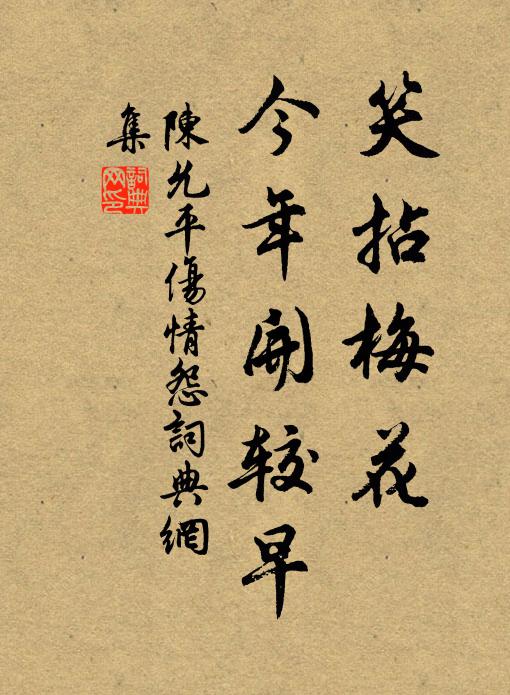 笑拈梅花
今年開較早
陳允平傷情怨詞典網
集
詞典
网印